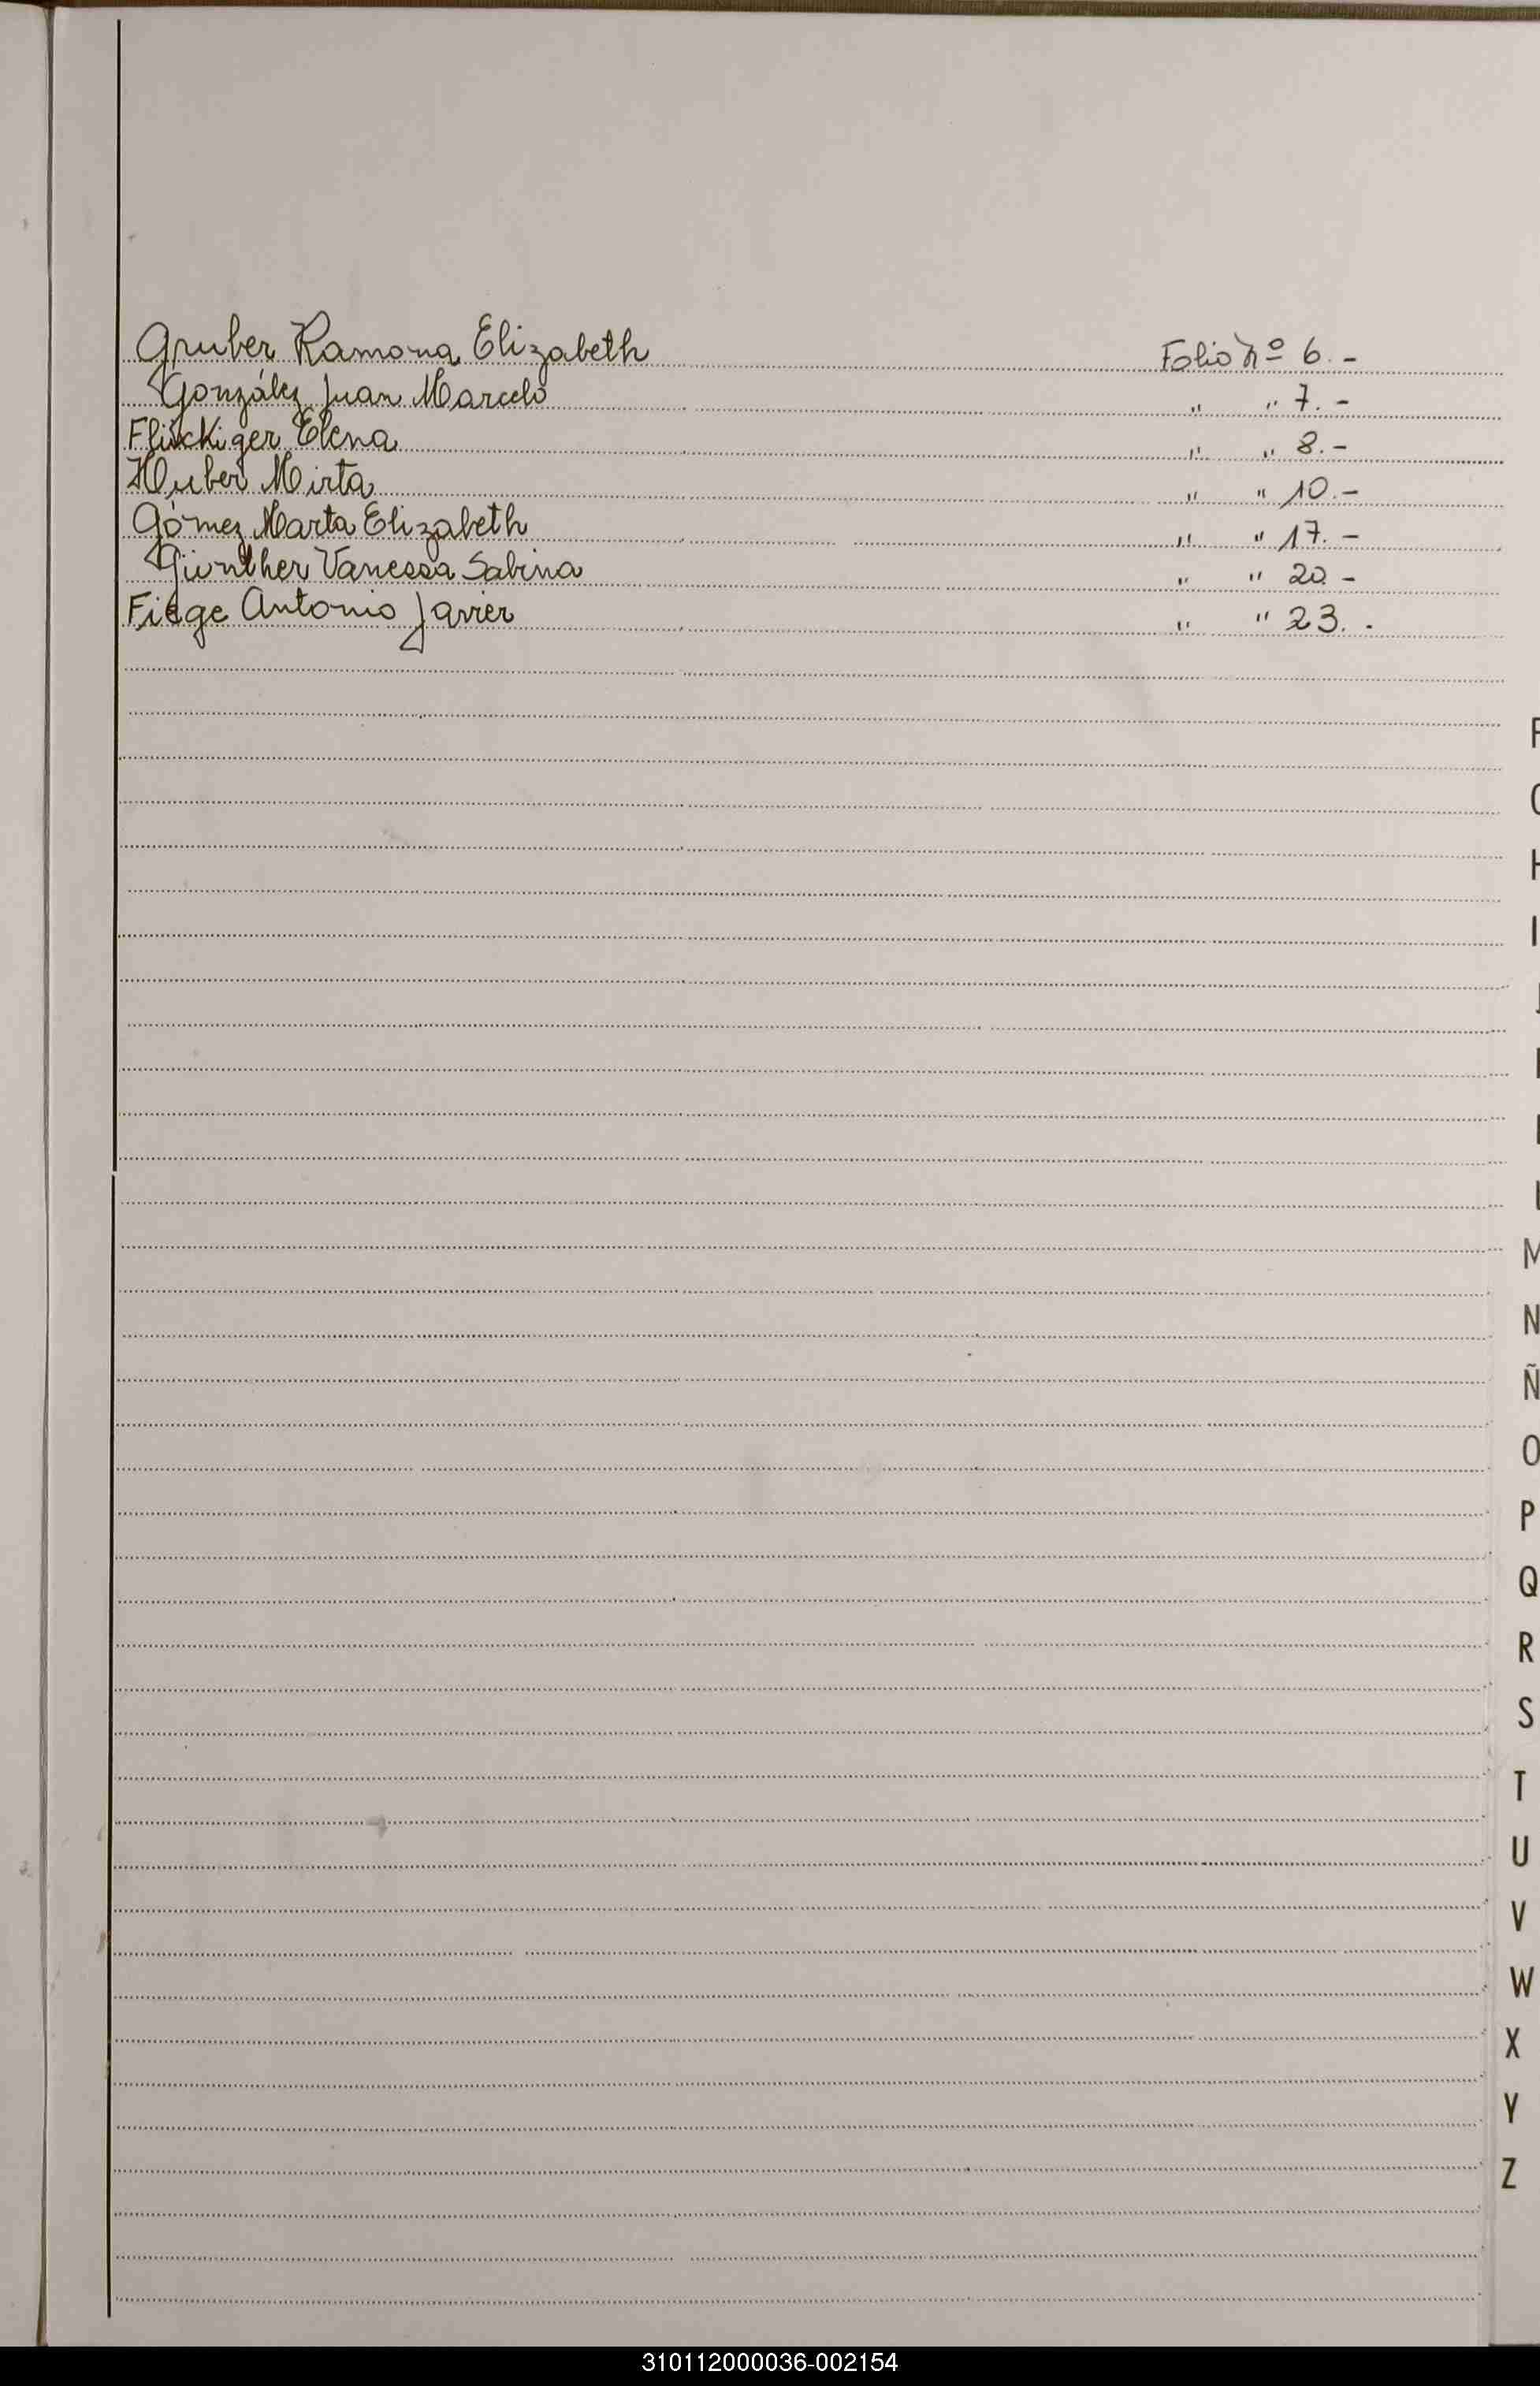 Gruber Ramona Elizabeth Folio Nº 6.-
González Juan Marcelo " " 7.-
Flückiger Elena " " 8.-
Huber Mirta " " 10.-
Gómez Marta Elizabeth " " 17.-
Günther Vanessa Sabina " " 20.-
Fiege Antonio Javier " " 23.-
H
I
M
N
Ñ
O
P
Q
R
S
T
U
V
W
X
Y
Z
310112000036-002154